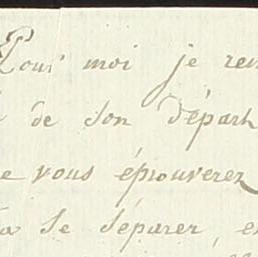 Pour moi je ren
de son départ
e vous éprouverez
a se séparer, e